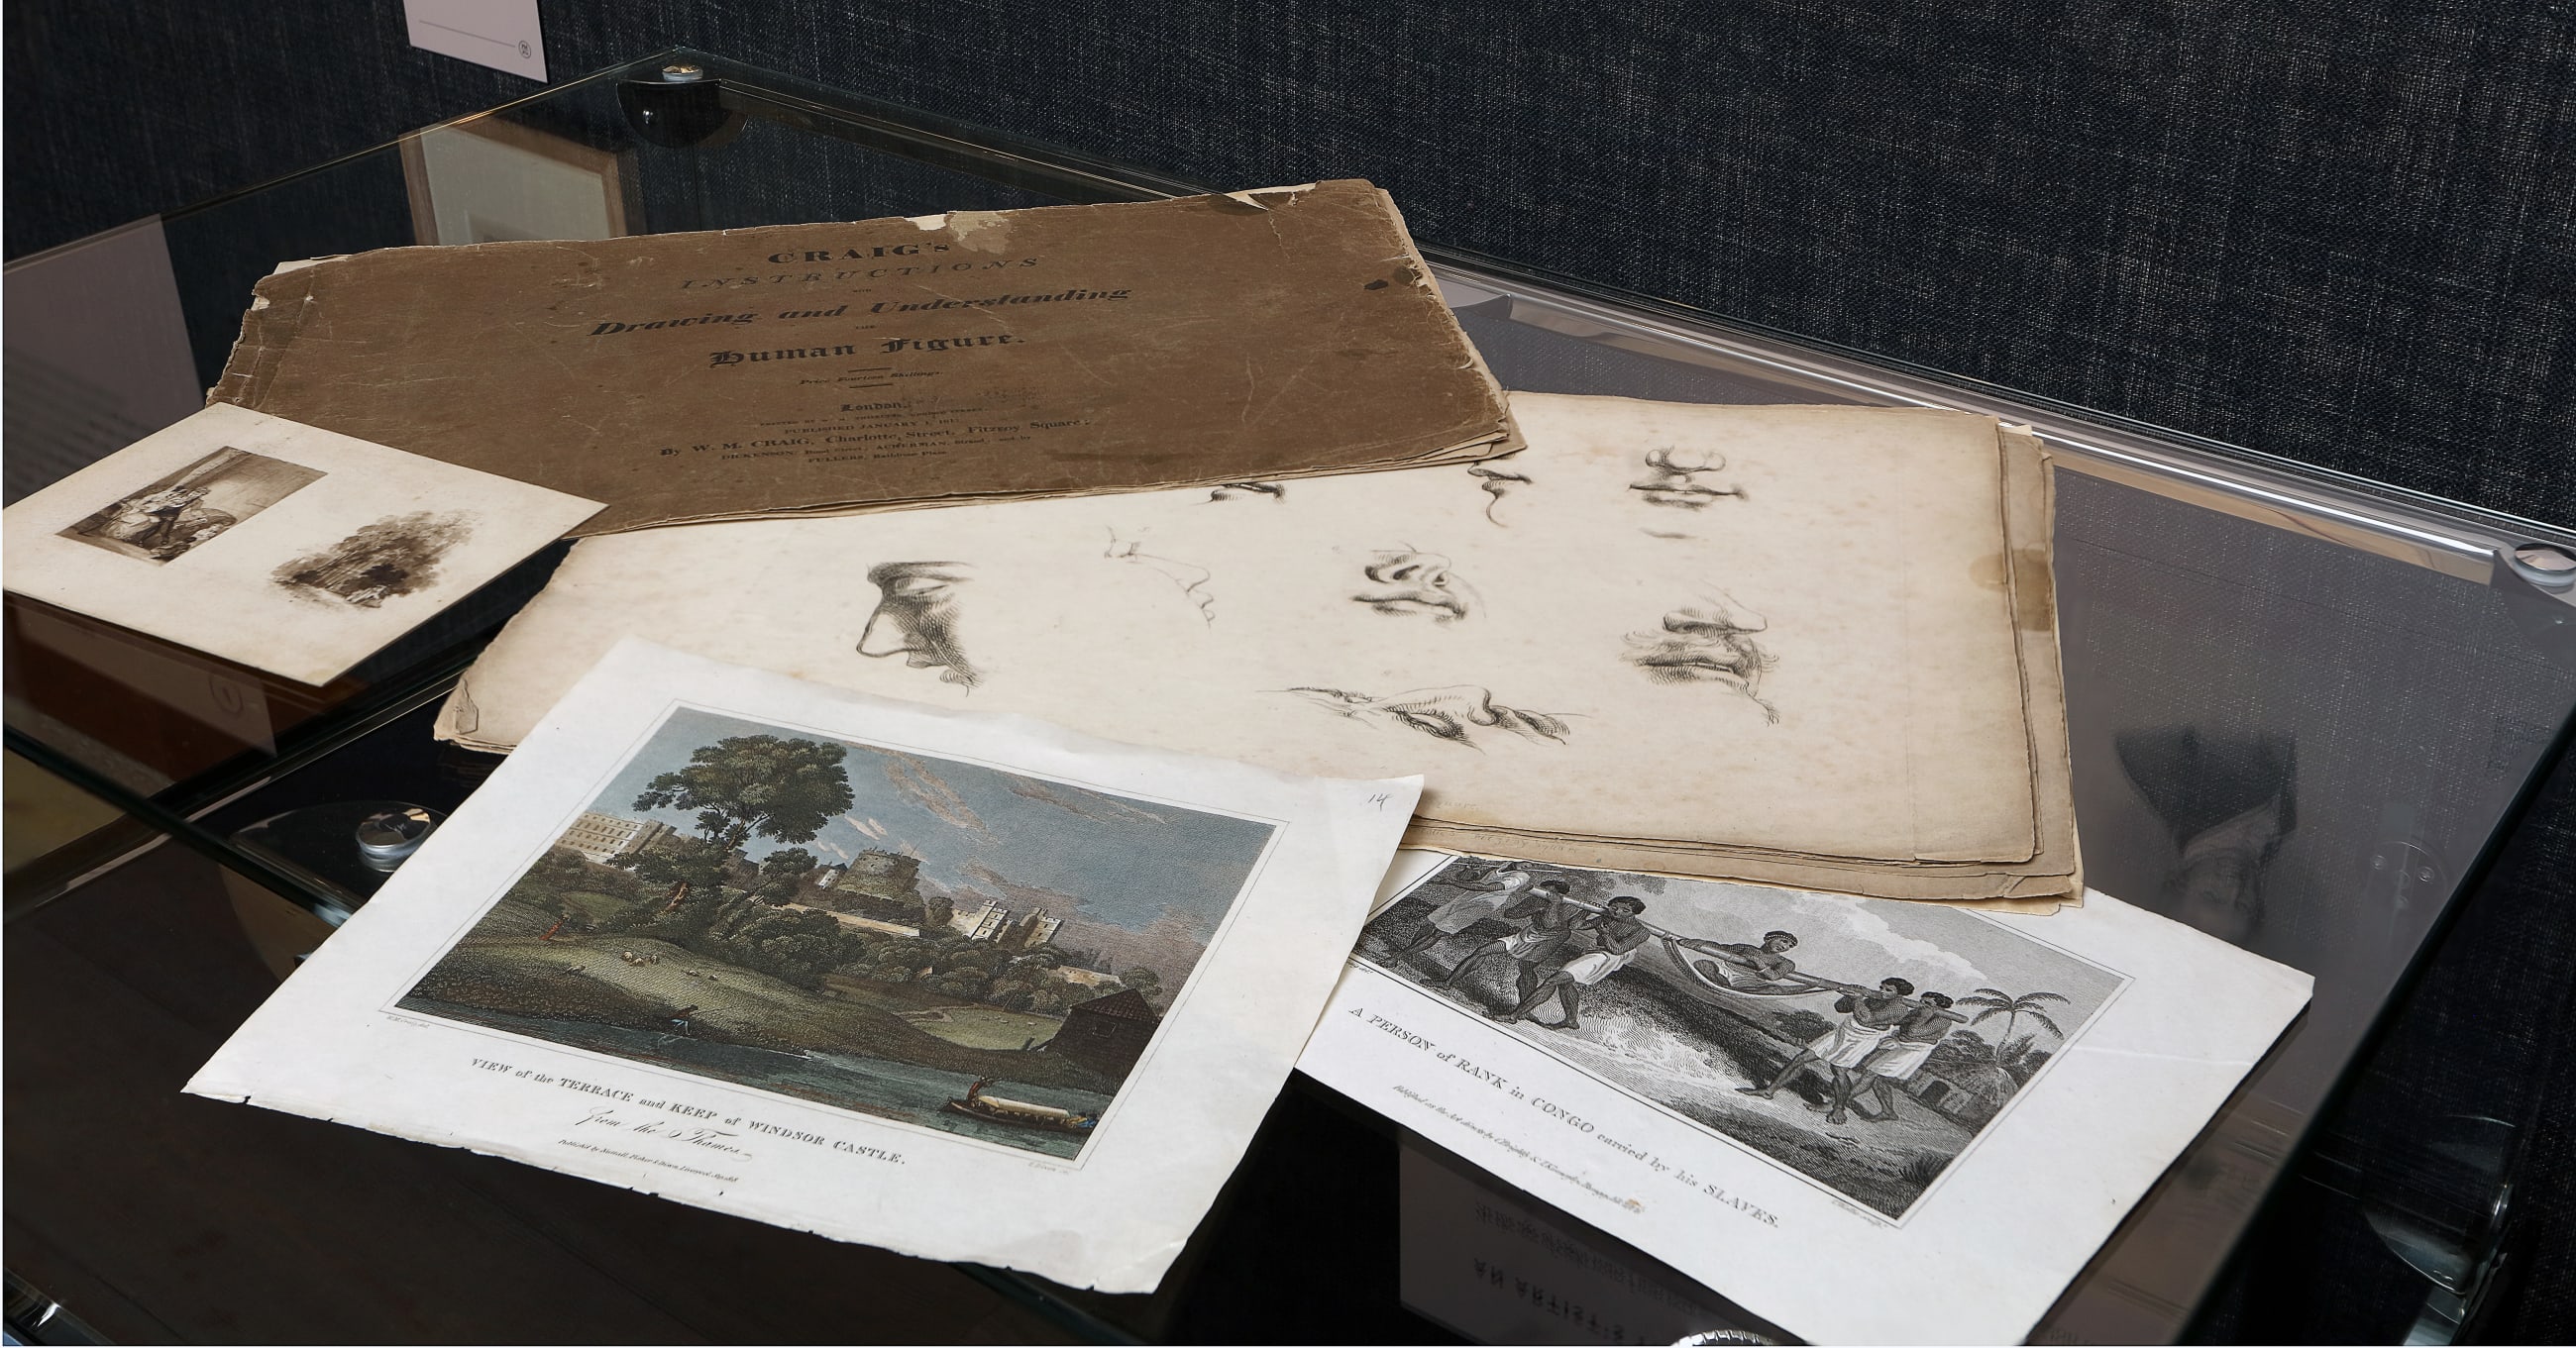 CRAIG's
INSTRUCTIONS
FOR
Drawing and Understanding
THE
Human Figure.
Price Fourteen Shillings.
London,
PUBLISHED JANUARY 1,
By W. M. CRAIG, Charlotte, Street, Fitzroy Square,
DICKENSON, Bond Street; ACKERMAN, Strand, and by
FULLERS, Rathbone Place.
14
VIEW of the TERRACE and KEEP of WINDSOR CASTLE.
from the Thames.
Published by Nuttall, Fisher & Dixon, Liverpool,
A PERSON of RANK in CONGO carried by his SLAVES.
Published as the Act directs by
AN ARTIST'S